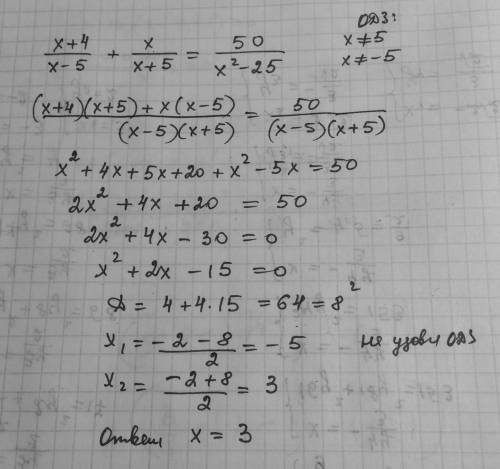 ОДЗ:
x+4/x-5 + x/x+5 = 50/x²-25
x≠5
x≠-5
(x+4)(x+5)+x(x-5)/(x-5)(x+5) = 50/(x-5)(x+5)
x²+4x+5x+20+x²-5x=50
2x²+4x+20 = 50
2x²+4x-30=0
x²+2x-15=0
D=4+4·15=64=8²
x₁=-2-8/2=-5 не удовл ОДЗ
x₂=-2+8/2=3
Ответ x=3